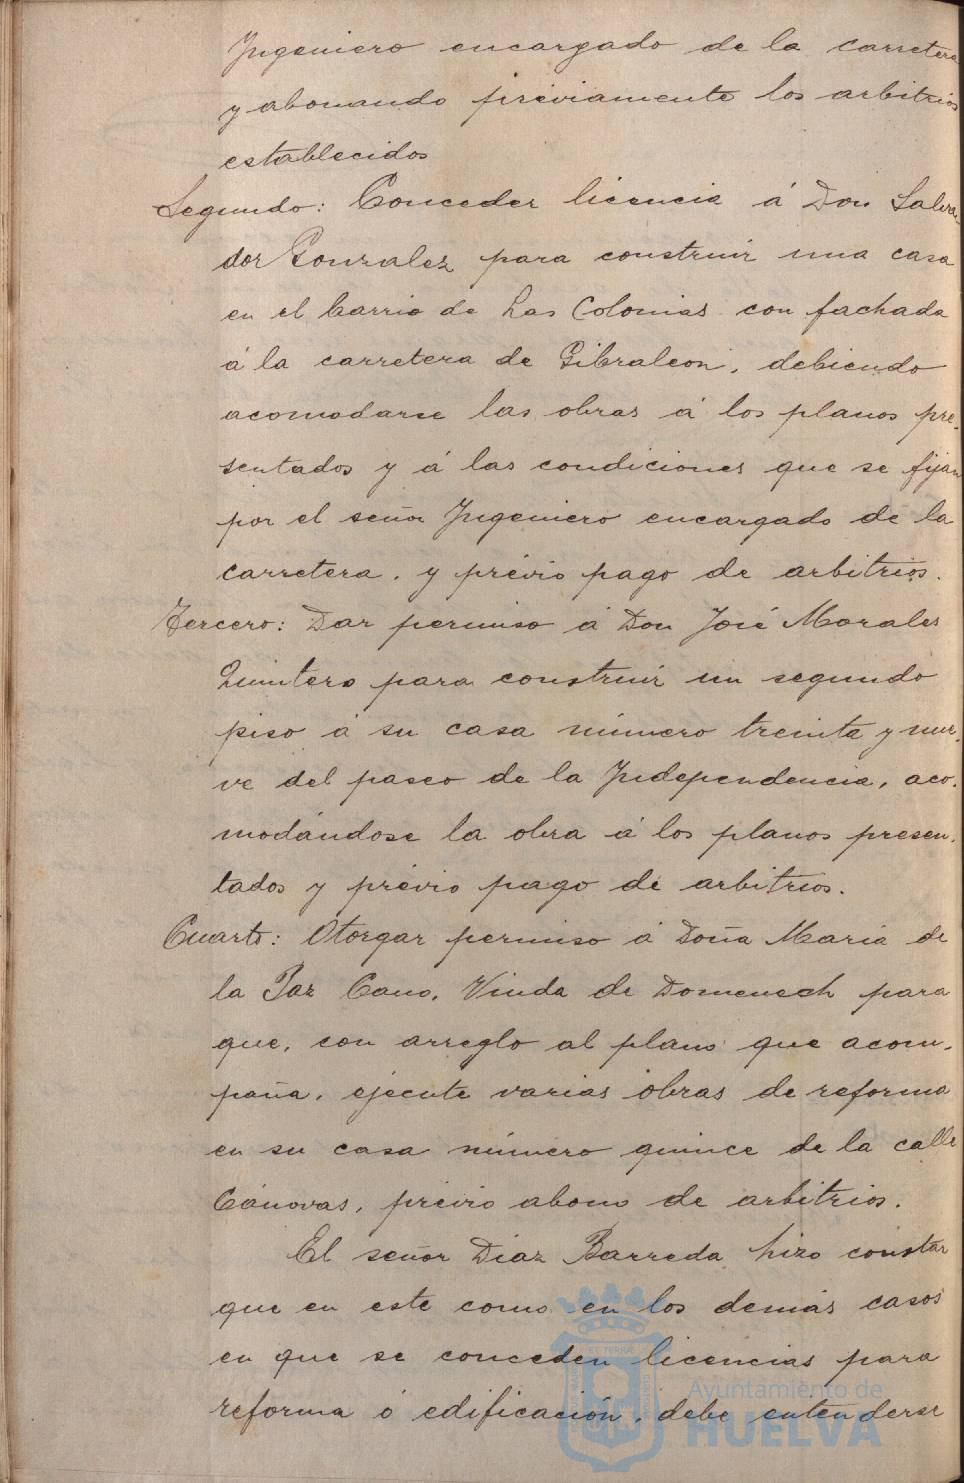 Ingeniero encargado de la carretera
y abonando préviamente los arbitrios
establecidos
Segundo: Conceder licencia á Don Salva-
dor Gonzalez para construir una casa
en el barrio de Las Colonias con fachada
á la carretera de Gibraleon, debiendo
acomodarse las obras á los planos pre-
sentados y á las condiciones que se fijan
por el señor Ingeniero encargado de la
carretera, y prévio pago de arbitrios.
Tercero: Dar permiso á Don José Morales
Quintero para construir un segundo
piso á su casa número treinta y nue-
ve del paseo de la Independencia, aco-
modándose la obra á los planos presen-
tados y prévio pago de arbitrios.
Cuarto: Otorgar permiso á Doña Maria de
la Paz Cano, Viuda de Domenech para
que, con arreglo al plano que acom-
paña, ejecute varias obras de reforma
en su casa número quince de la calle
Cánovas, prévio abono de arbitrios.
El señor Diaz Barreda hizo constar
que en este como en los demás casos
en que se conceden licencias para
reforma ó edificación, debe entenderse
Ayuntamiento de
HUELVA